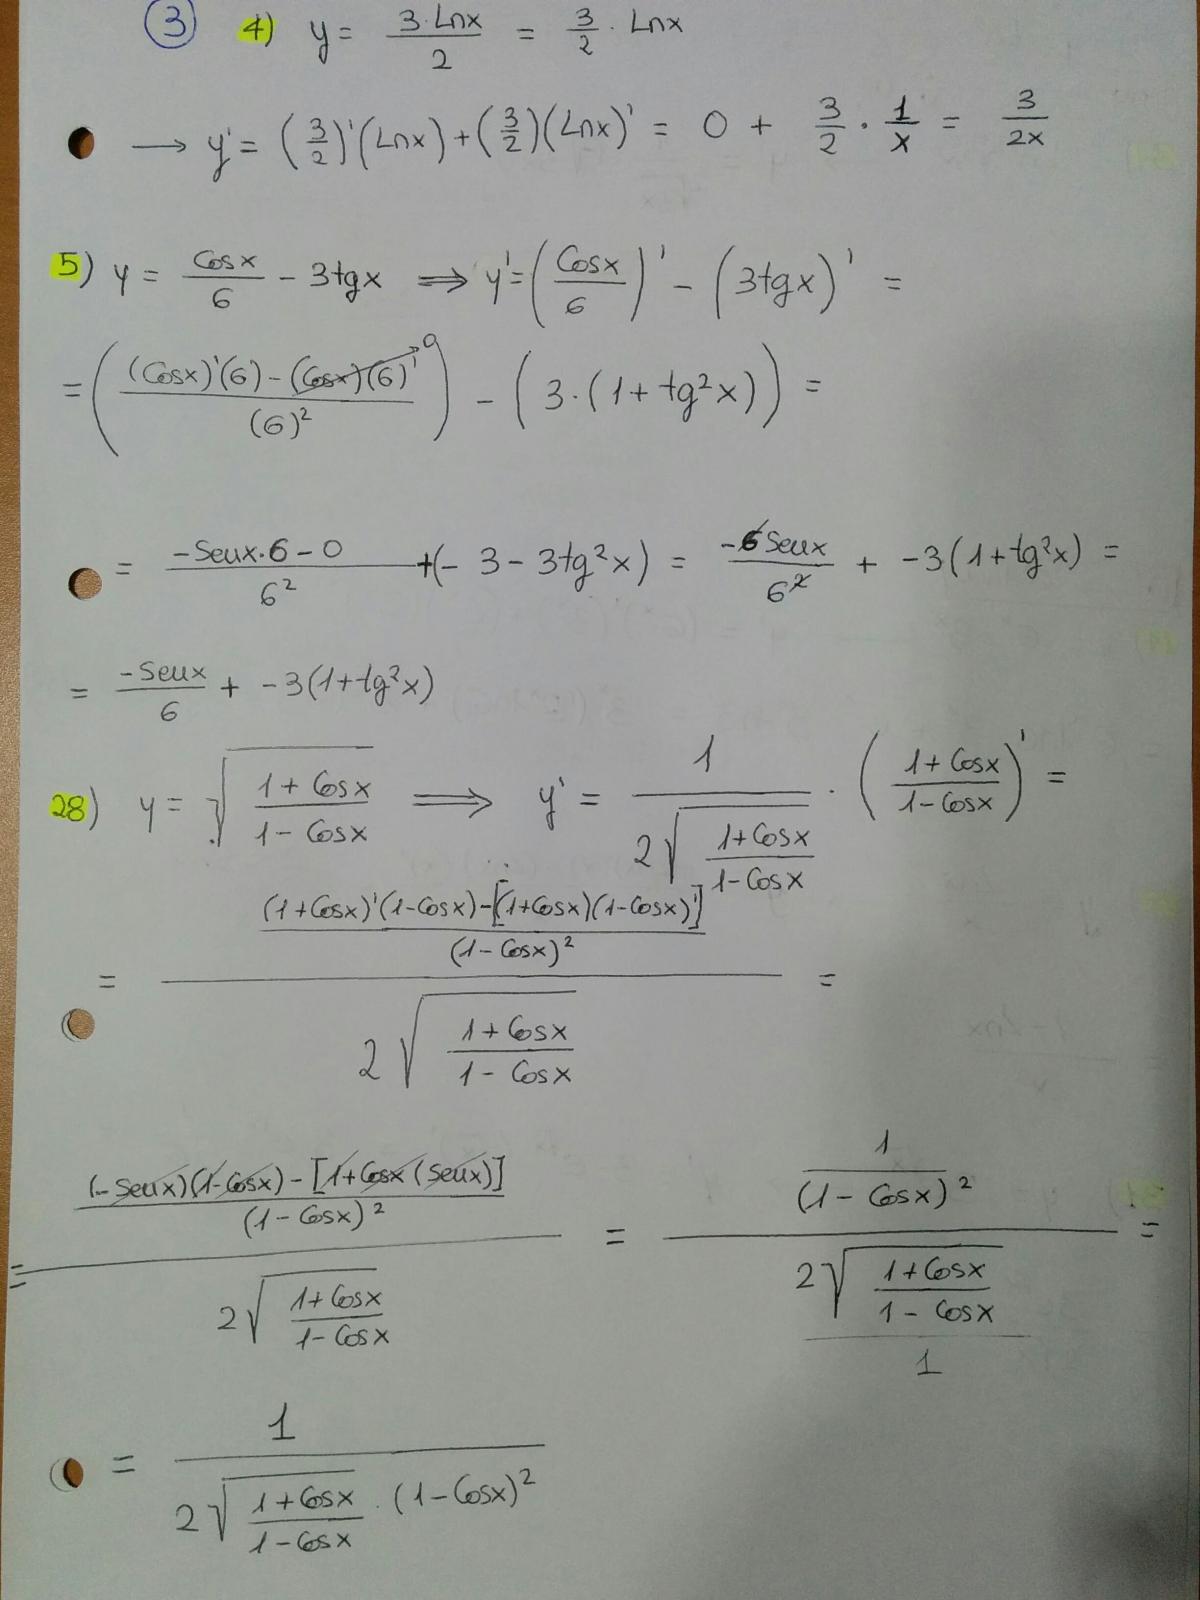 ③ 4) y = 3·Lnx/2 = 3/2 · Lnx
→ y' = (3/2)'(Lnx) + (3/2)(Lnx)' = 0 + 3/2 · 1/x = 3/2x
5) y = Cosx/6 - 3tgx ⟹ y' = (Cosx/6)' - (3tgx)' =
= ((Cosx)'(6) - (Cosx)(6)' → 0 / (6)²) - (3·(1+tg²x)) =
= -Senx·6-0/6² + (-3-3tg²x) = -6Senx/6² + -3(1+tg²x) =
= -Senx/6 + -3(1+tg²x)
28) y = √((1+Cosx)/(1-Cosx)) ⟹ y' = 1/(2√((1+Cosx)/(1-Cosx))) · ((1+Cosx)/(1-Cosx))' =
= ((1+Cosx)'(1-Cosx)-[(1+Cosx)(1-Cosx)']/(1-Cosx)²) / (2√((1+Cosx)/(1-Cosx))) =
= ((-Senx)(1-Cosx)-[1+Cosx(Senx)]/(1-Cosx)²) / (2√((1+Cosx)/(1-Cosx))) = (1/(1-Cosx)²) / (2√((1+Cosx)/(1-Cosx))/1) =
= 1/(2√((1+Cosx)/(1-Cosx)) · (1-Cosx)²)